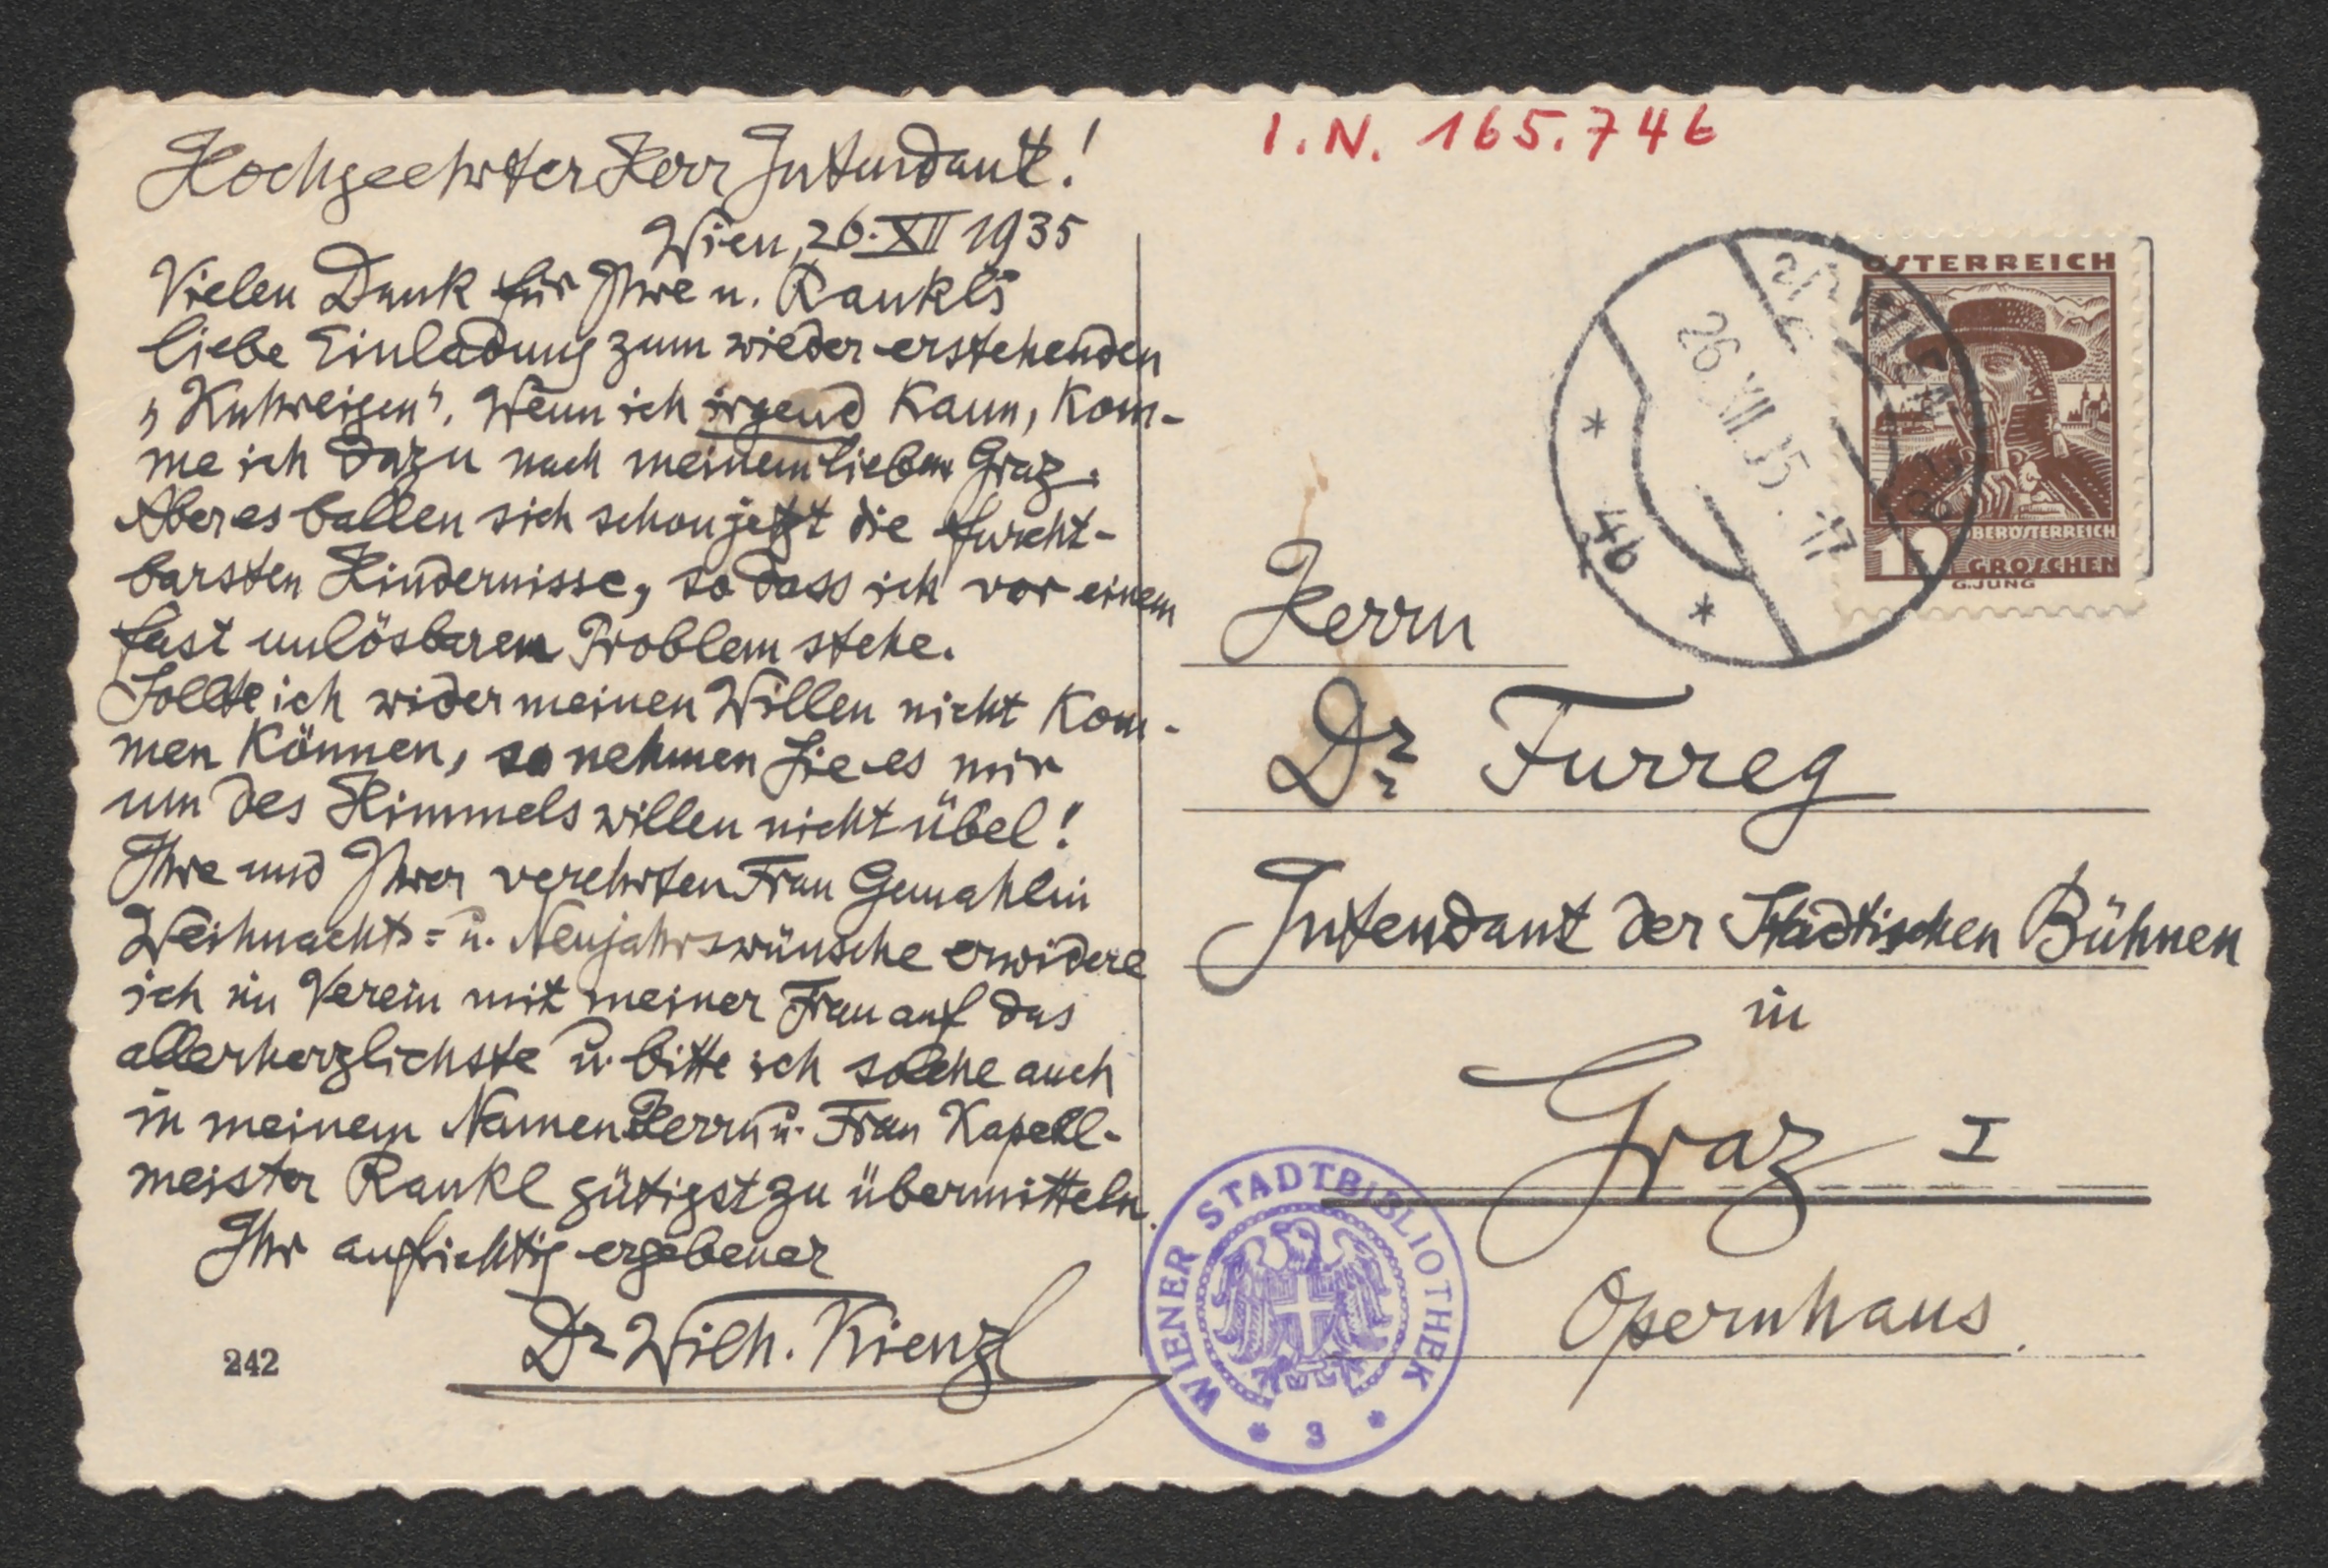 Hochgeehrter Herr Intendant!
Wien, 26. XII 1935
Vielen Dank für Ihre u. Rankls
liebe Einladung zum wieder erstehenden
„Kuhreigen". Wenn ich irgend kann, kom-
me ich dazu nach meinem lieben Graz.
Aber es ballen sich schon jetzt die furcht-
barsten Hindernisse, so dass ich vor einem
fast unlösbaren Problem stehe.
Sollte ich wider meinen Willen nicht kom-
men können, so nehmen Sie es mir
um des Himmels willen nicht übel!
Ihre und Ihrer verehrten Frau Gemahlin
Weihnachts= u. Neujahrswünsche erwidere
ich im Verein mit meiner Frau auf das
allerherzlichste u. bitte ich solche auch
in meinem Namen Herrn u. Frau Kapell-
meister Rankl gütigst zu übermitteln.
Ihr aufrichtig ergebener
Dr Wilh. Kienzl
242
I.N. 165.746
ÖSTERREICH
OBERÖSTERREICH
10 GROSCHEN
G.JUNG
WIEN
26.XII.35.17
* 4b *
Herrn
Dr. Furreg
Intendant der Städtischen Bühnen
in
Graz I
Opernhaus.
WIENER STADTBIBLIOTHEK
* 3 *